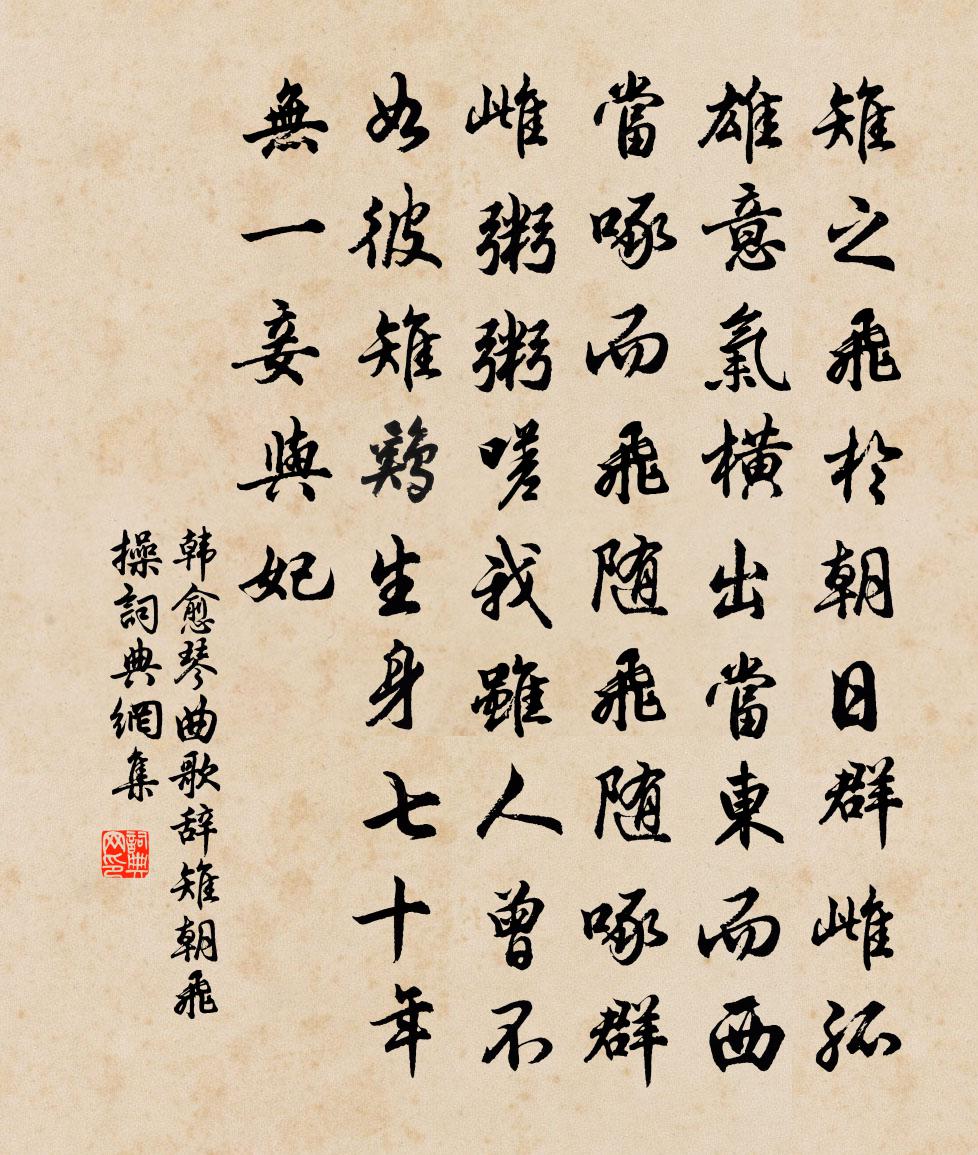 雉之飛於朝日群雌孤
雄意氣橫出當東而西
當啄而飛随飛随啄群
雌粥粥嗟我雖人曾不
如彼雉鷄生身七十年
無一妾與妃
韩愈琴曲歌辞雉朝飛
操詞典網集
詞典网印